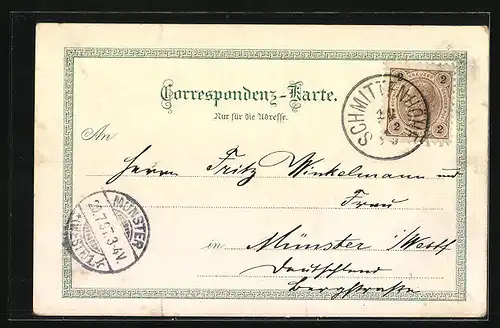 Correspondenz-Karte.
Nur für die Adresse.
2 KREUZER 2
2 2
SCHMITTENHÖHE
An
Herrn Fritz Winkelmann und
Frau
in Münster i/Westf
Deutschland
Bergstraße
MÜNSTER
(WESTF.)
3-4V.